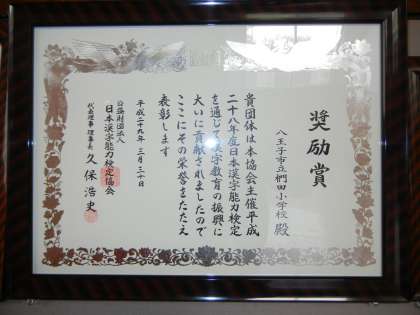 奨励賞
八王子市立椚田小学校 殿
貴団体は本協会主催平成
二十八年度日本漢字能力検定
を通じて漢字教育の振興に
大いに貢献されましたので
ここにその栄誉をたたえ
表彰します
平成二十九年 三月三十日
公益財団法人
日本漢字能力検定協会
代表理事 理事長 久保浩史